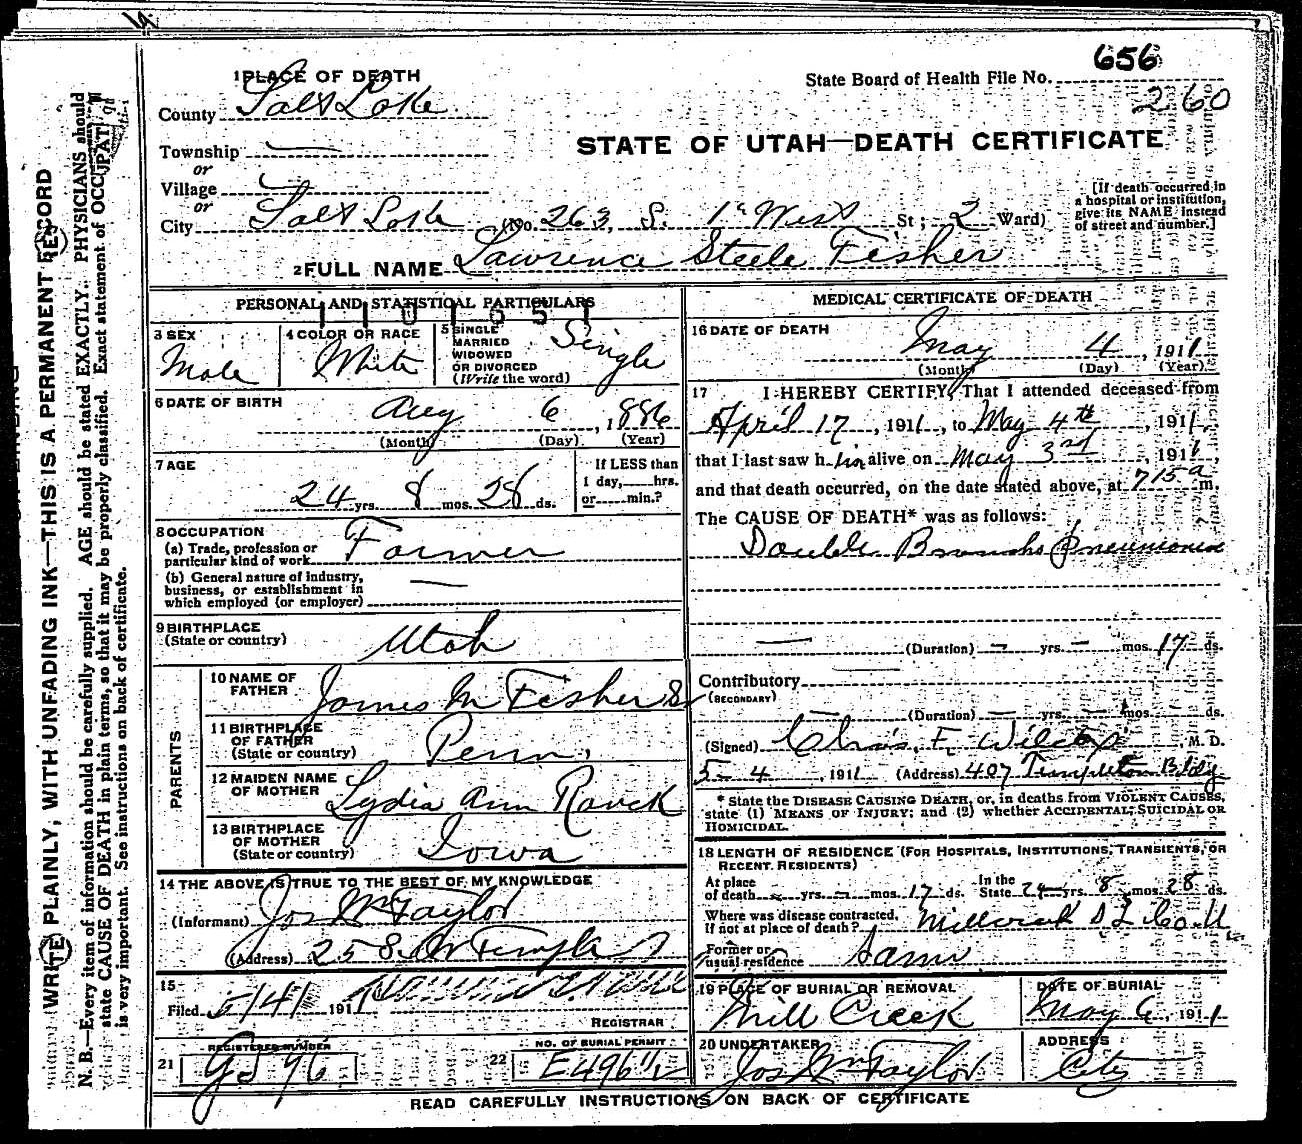 656
State Board of Health File No.
260
1 PLACE OF DEATH
County Salt Lake
STATE OF UTAH—DEATH CERTIFICATE
Township
or
Village
or
City Salt Lake (No. 263, S. 1st West St; 2 Ward)
[If death occurred in a hospital or institution, give its NAME instead of street and number.]
2 FULL NAME Lawrence Steele Fisher
PERSONAL AND STATISTICAL PARTICULARS
3 SEX Male
4 COLOR OR RACE White
5 SINGLE MARRIED WIDOWED OR DIVORCED (Write the word) Single
6 DATE OF BIRTH Aug 6, 1886
(Month) (Day) (Year)
7 AGE 24 yrs. 8 mos. 28 ds.
If LESS than 1 day, hrs. or min.?
8 OCCUPATION
(a) Trade, profession or particular kind of work Farmer
(b) General nature of industry, business, or establishment in which employed (or employer)
9 BIRTHPLACE (State or country) Utah
PARENTS
10 NAME OF FATHER James M Fisher Sr
11 BIRTHPLACE OF FATHER (State or country) Penn.
12 MAIDEN NAME OF MOTHER Lydia Ann Rauck
13 BIRTHPLACE OF MOTHER (State or country) Iowa
14 THE ABOVE IS TRUE TO THE BEST OF MY KNOWLEDGE
(Informant) Jos Wm Taylor
(Address) 25 So W Temple
15
Filed 5/4/ 1911
REGISTRAR
REGISTERED NUMBER
21
NO. OF BURIAL PERMIT
22
MEDICAL CERTIFICATE OF DEATH
16 DATE OF DEATH May 4, 1911
(Month) (Day) (Year)
17 I HEREBY CERTIFY, That I attended deceased from
April 17, 1911, to May 4th, 1911,
that I last saw him alive on May 3rd, 1911,
and that death occurred, on the date stated above, at 715 a m.
The CAUSE OF DEATH* was as follows:
Double Broncho pneumonia
(Duration) yrs. mos. 17 ds.
Contributory
(SECONDARY)
(Duration) yrs. mos. ds.
(Signed) Chas. F. Wilcox, M. D.
5-4, 1911 (Address) 407 Templeton Bldg
* State the DISEASE CAUSING DEATH, or, in deaths from VIOLENT CAUSES,
state (1) MEANS OF INJURY; and (2) whether ACCIDENTAL, SUICIDAL OR
HOMICIDAL.
18 LENGTH OF RESIDENCE (FOR HOSPITALS, INSTITUTIONS, TRANSIENTS, OR RECENT RESIDENTS)
At place of death yrs. mos. 17 ds. In the State 24 yrs. 8 mos. 28 ds.
Where was disease contracted, if not at place of death? Millcreek S L Co. U
Former or usual residence Same
19 PLACE OF BURIAL OR REMOVAL Mill Creek
DATE OF BURIAL May 6, 1911
20 UNDERTAKER Jos Wm Taylor
ADDRESS City
READ CAREFULLY INSTRUCTIONS ON BACK OF CERTIFICATE
(WRITE PLAINLY, WITH UNFADING INK—THIS IS A PERMANENT RECORD
N. B.—Every item of information should be carefully supplied. AGE should be stated EXACTLY. PHYSICIANS should
state CAUSE OF DEATH in plain terms, so that it may be properly classified. Exact statement of OCCUPATI
is very important. See instructions on back of certificate.